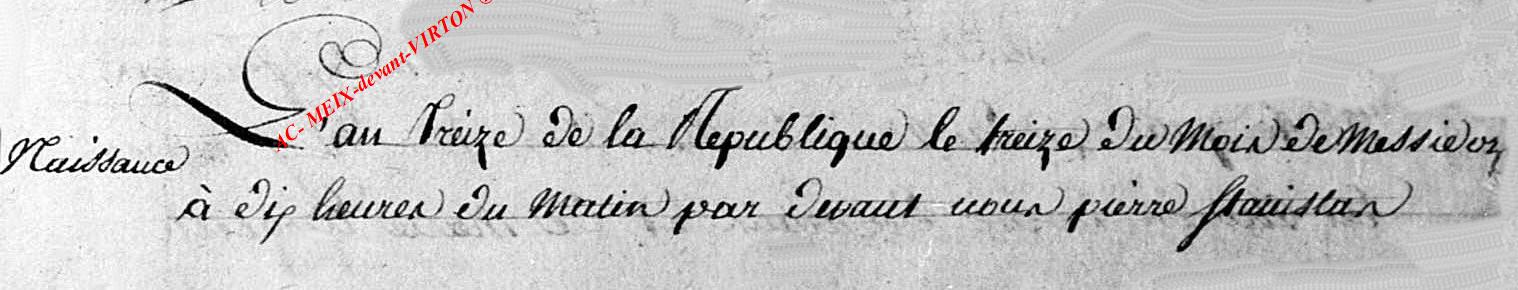 AC- MEIX-devant-VIRTON ©
L'an treize de la Republique le treize du Mois de Messidor
Naissance
à dix heures du Matin par devant nous pierre stanislas